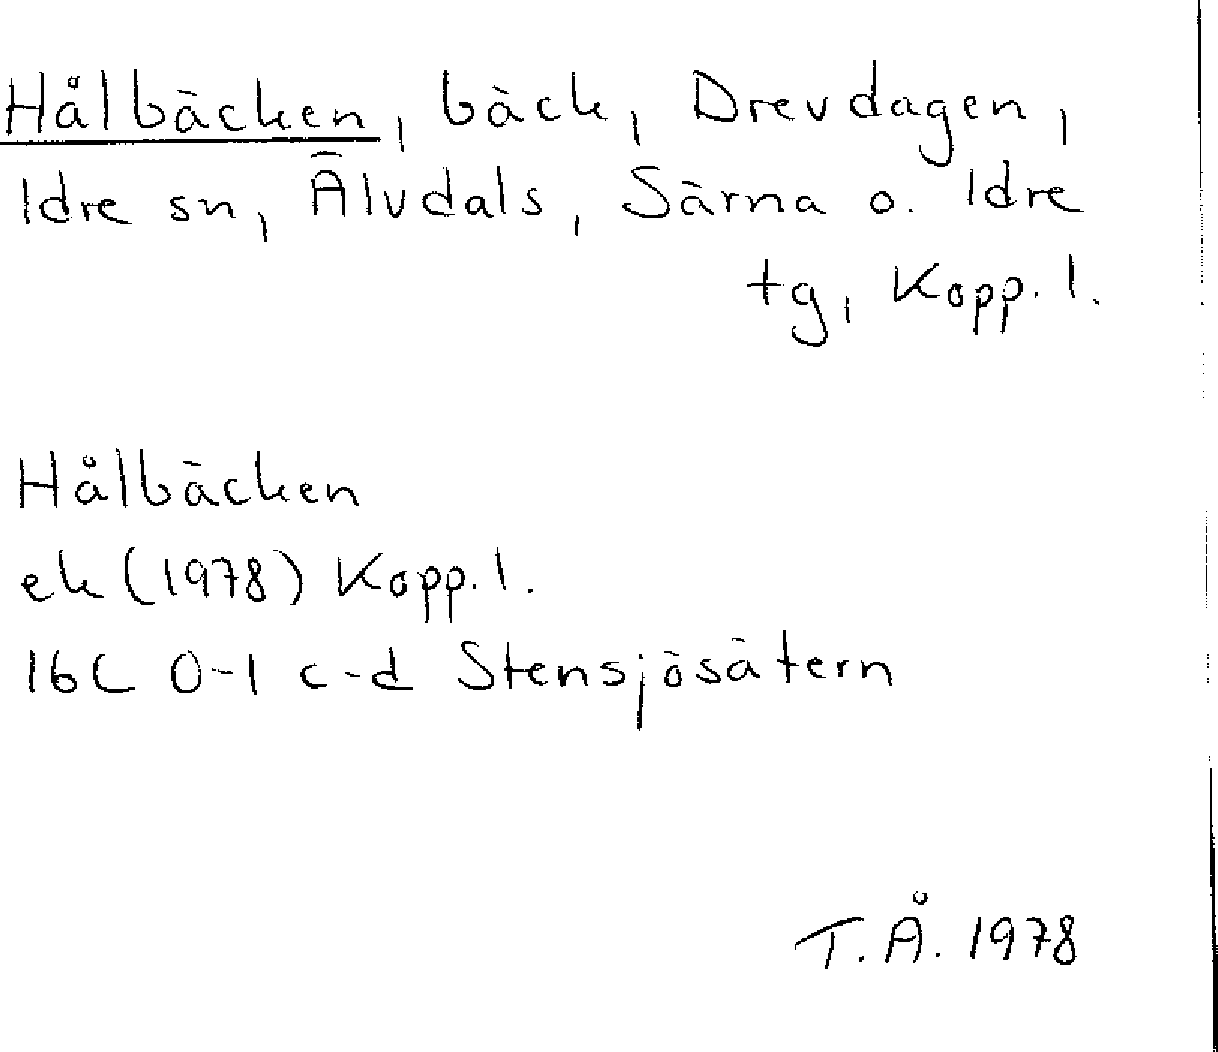 Hålbäcken, bäck, Drevdagen,
Idre sn, Älvdals, Särna o. Idre
tg, Kopp. l.
Hålbäcken
ek (1978) Kopp. l.
16C 0-1 c-d Stensjösätern
T. Å. 1978